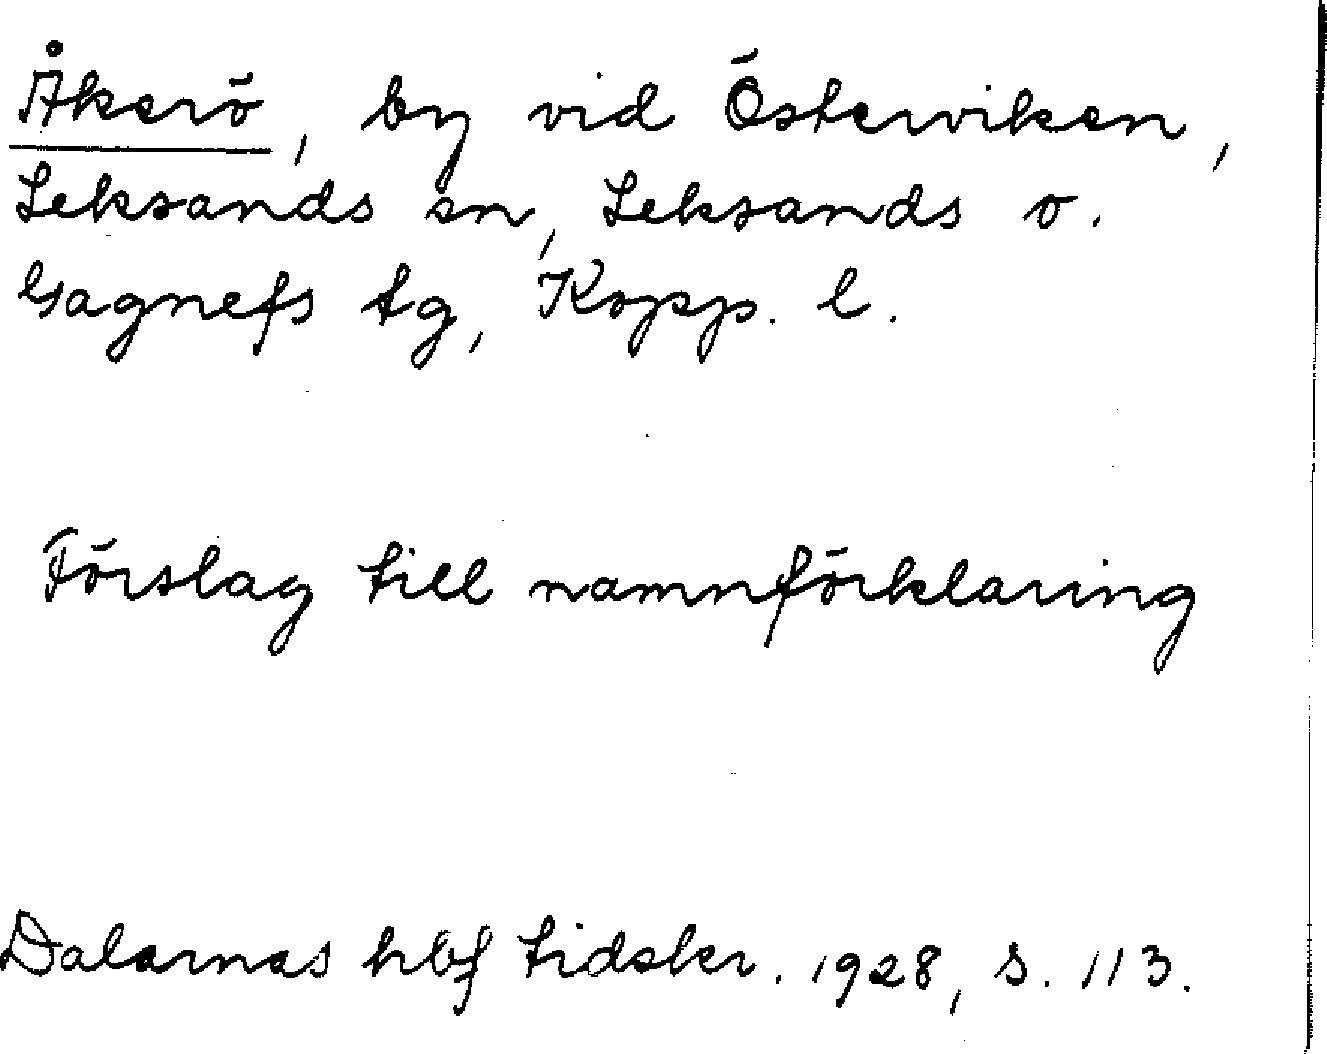 Åkerö, by vid Österviken,
Leksands sn, Leksands o.
Gagnefs tg, Kopp. l.
Förslag till namnförklaring
Dalarnas hbf tidskr. 1928, s. 113.